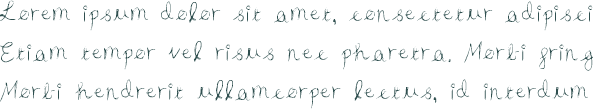 Lorem ipsum dolor sit amet, consectetur adipisci
Etiam tempor vel risus nec pharetra. Morbi fring
Morbi hendrerit ullamcorper lectus, id interdum